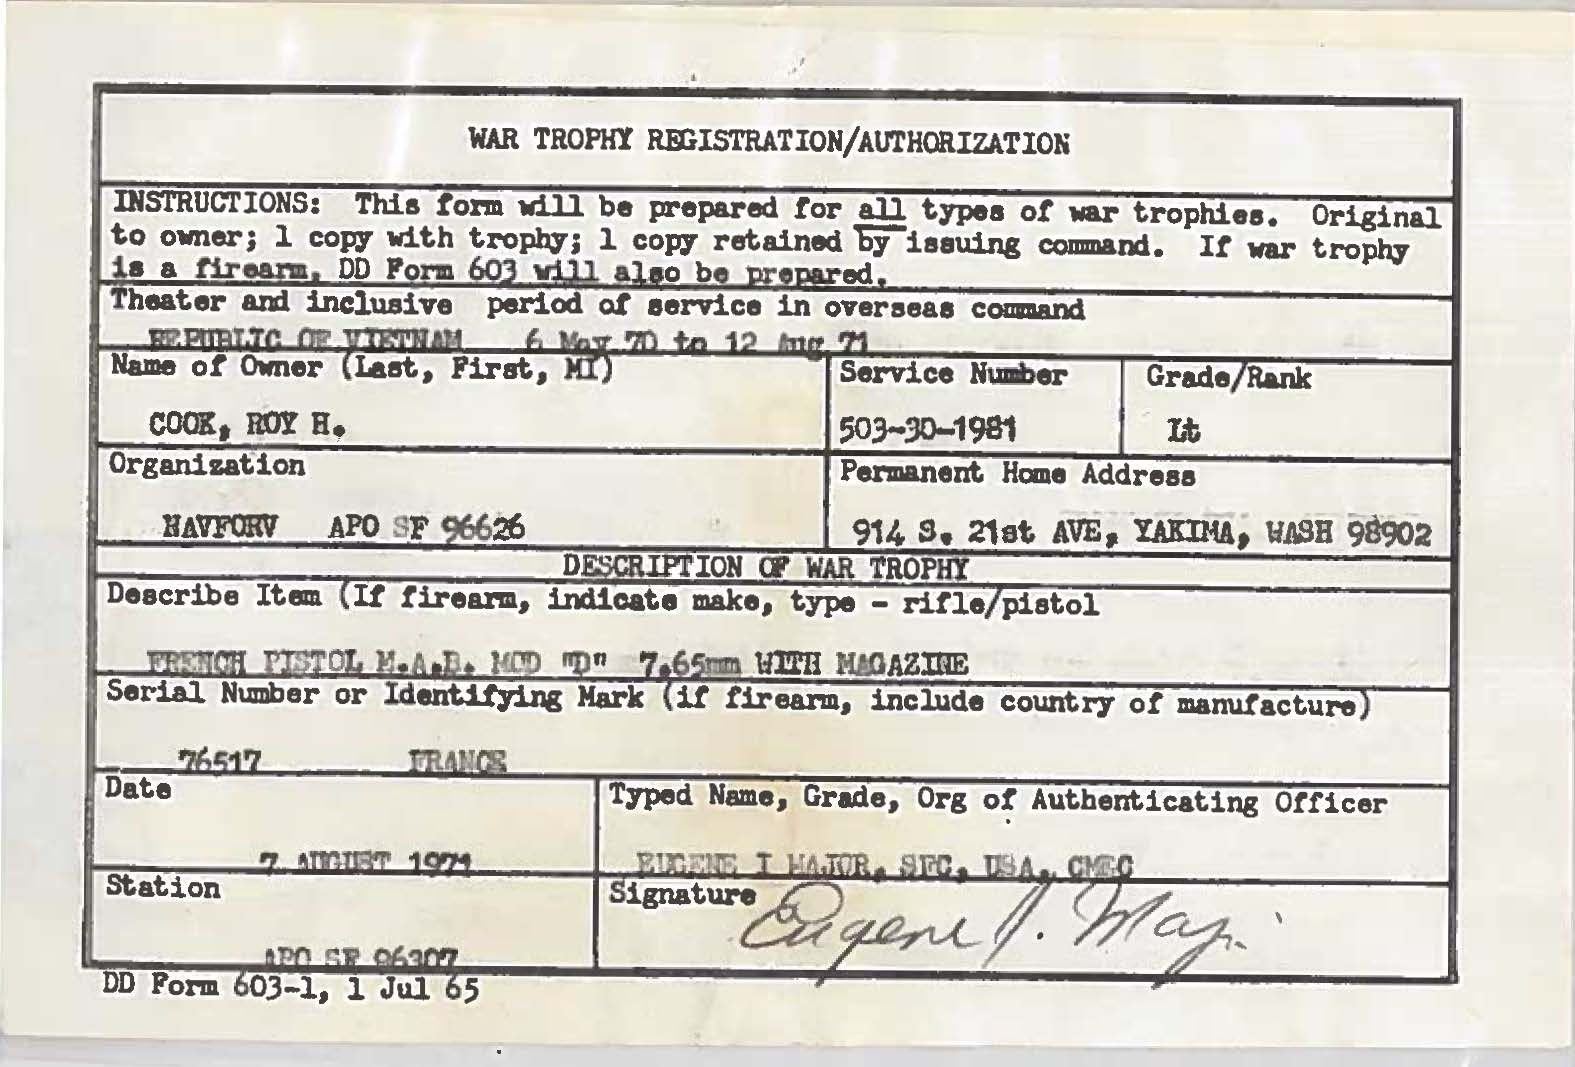 WAR TROPHY REGISTRATION/AUTHORIZATION
INSTRUCTIONS: This form will be prepared for all types of war trophies. Original
to owner; 1 copy with trophy; 1 copy retained by issuing command. If war trophy
is a firearm, DD Form 603 will also be prepared.
Theater and inclusive period of service in overseas command
REPUBLIC OF VIETNAM 6 May 70 to 12 Aug 71
Name of Owner (Last, First, MI)
Service Number
Grade/Rank
COOK, ROY H.
503-30-1981
Lt
Organization
Permanent Home Address
NAVFORV APO SF 96626
914 S. 21st AVE, YAKIMA, WASH 98902
DESCRIPTION OF WAR TROPHY
Describe Item (If firearm, indicate make, type - rifle/pistol
FRENCH PISTOL M.A.B. MOD "D" 7.65mm WITH MAGAZINE
Serial Number or Identifying Mark (if firearm, include country of manufacture)
76517 FRANCE
Date
Typed Name, Grade, Org of Authenticating Officer
7 AUGUST 1971
EUGENE I MAJOR, SFC, USA, CMEC
Station
Signature
Eugene
APO SF 96307
DD Form 603-1, 1 Jul 65